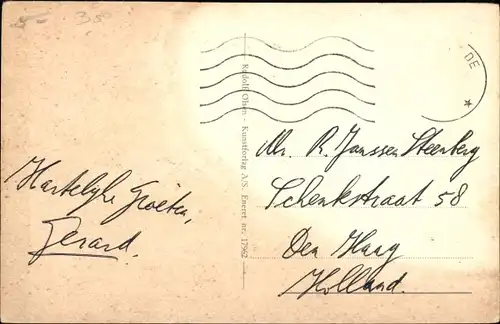 8- 38
DE
Rudolf Olsen - Kunstforlag A/S. Eneret nr. 17962
Mr. R. Janssen Steenberg
Schenkstraat 58
Den Haag
Holland.
Hartelyke Groeten,
Gerard.